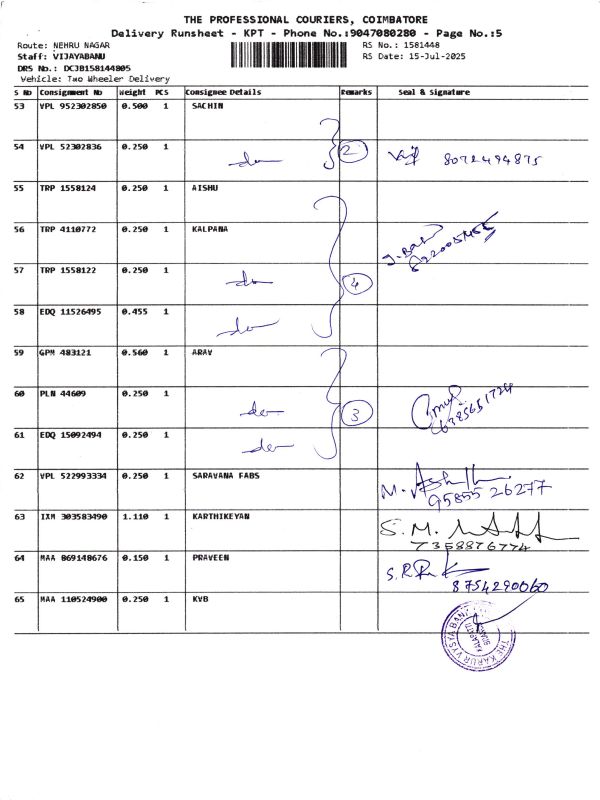 THE PROFESSIONAL COURIERS, COIMBATORE
Delivery Runsheet - KPT - Phone No.:9047080280 - Page No.:5
Route: NEHRU NAGAR RS No. : 1581448
Staff: VIJAYABANU RS Date: 15-Jul-2025
DRS No.: DCJB158144805
Vehicle: Two Wheeler Delivery
S No Consignment No Weight PCS Consignee Details Remarks Seal & Signature
53 VPL 952302850 0.500 1 SACHIN
54 VPL 52302836 0.250 1 do 2 8072494875
55 TRP 1558124 0.250 1 AISHU
56 TRP 4110772 0.250 1 KALPANA
57 TRP 1558122 0.250 1 do 4
58 EDQ 11526495 0.455 1 do
59 GPM 483121 0.560 1 ARAV
60 PLN 44609 0.250 1 do 3
61 EDQ 15092494 0.250 1 do
62 VPL 522993334 0.250 1 SARAVANA FABS
95855 26277
63 IXM 303583490 1.110 1 KARTHIKEYAN S. M.
7358876774
64 MAA 869148676 0.150 1 PRAVEEN S.R
8754290060
65 MAA 110524900 0.250 1 KVB
THE KARUR VYSYA BANK